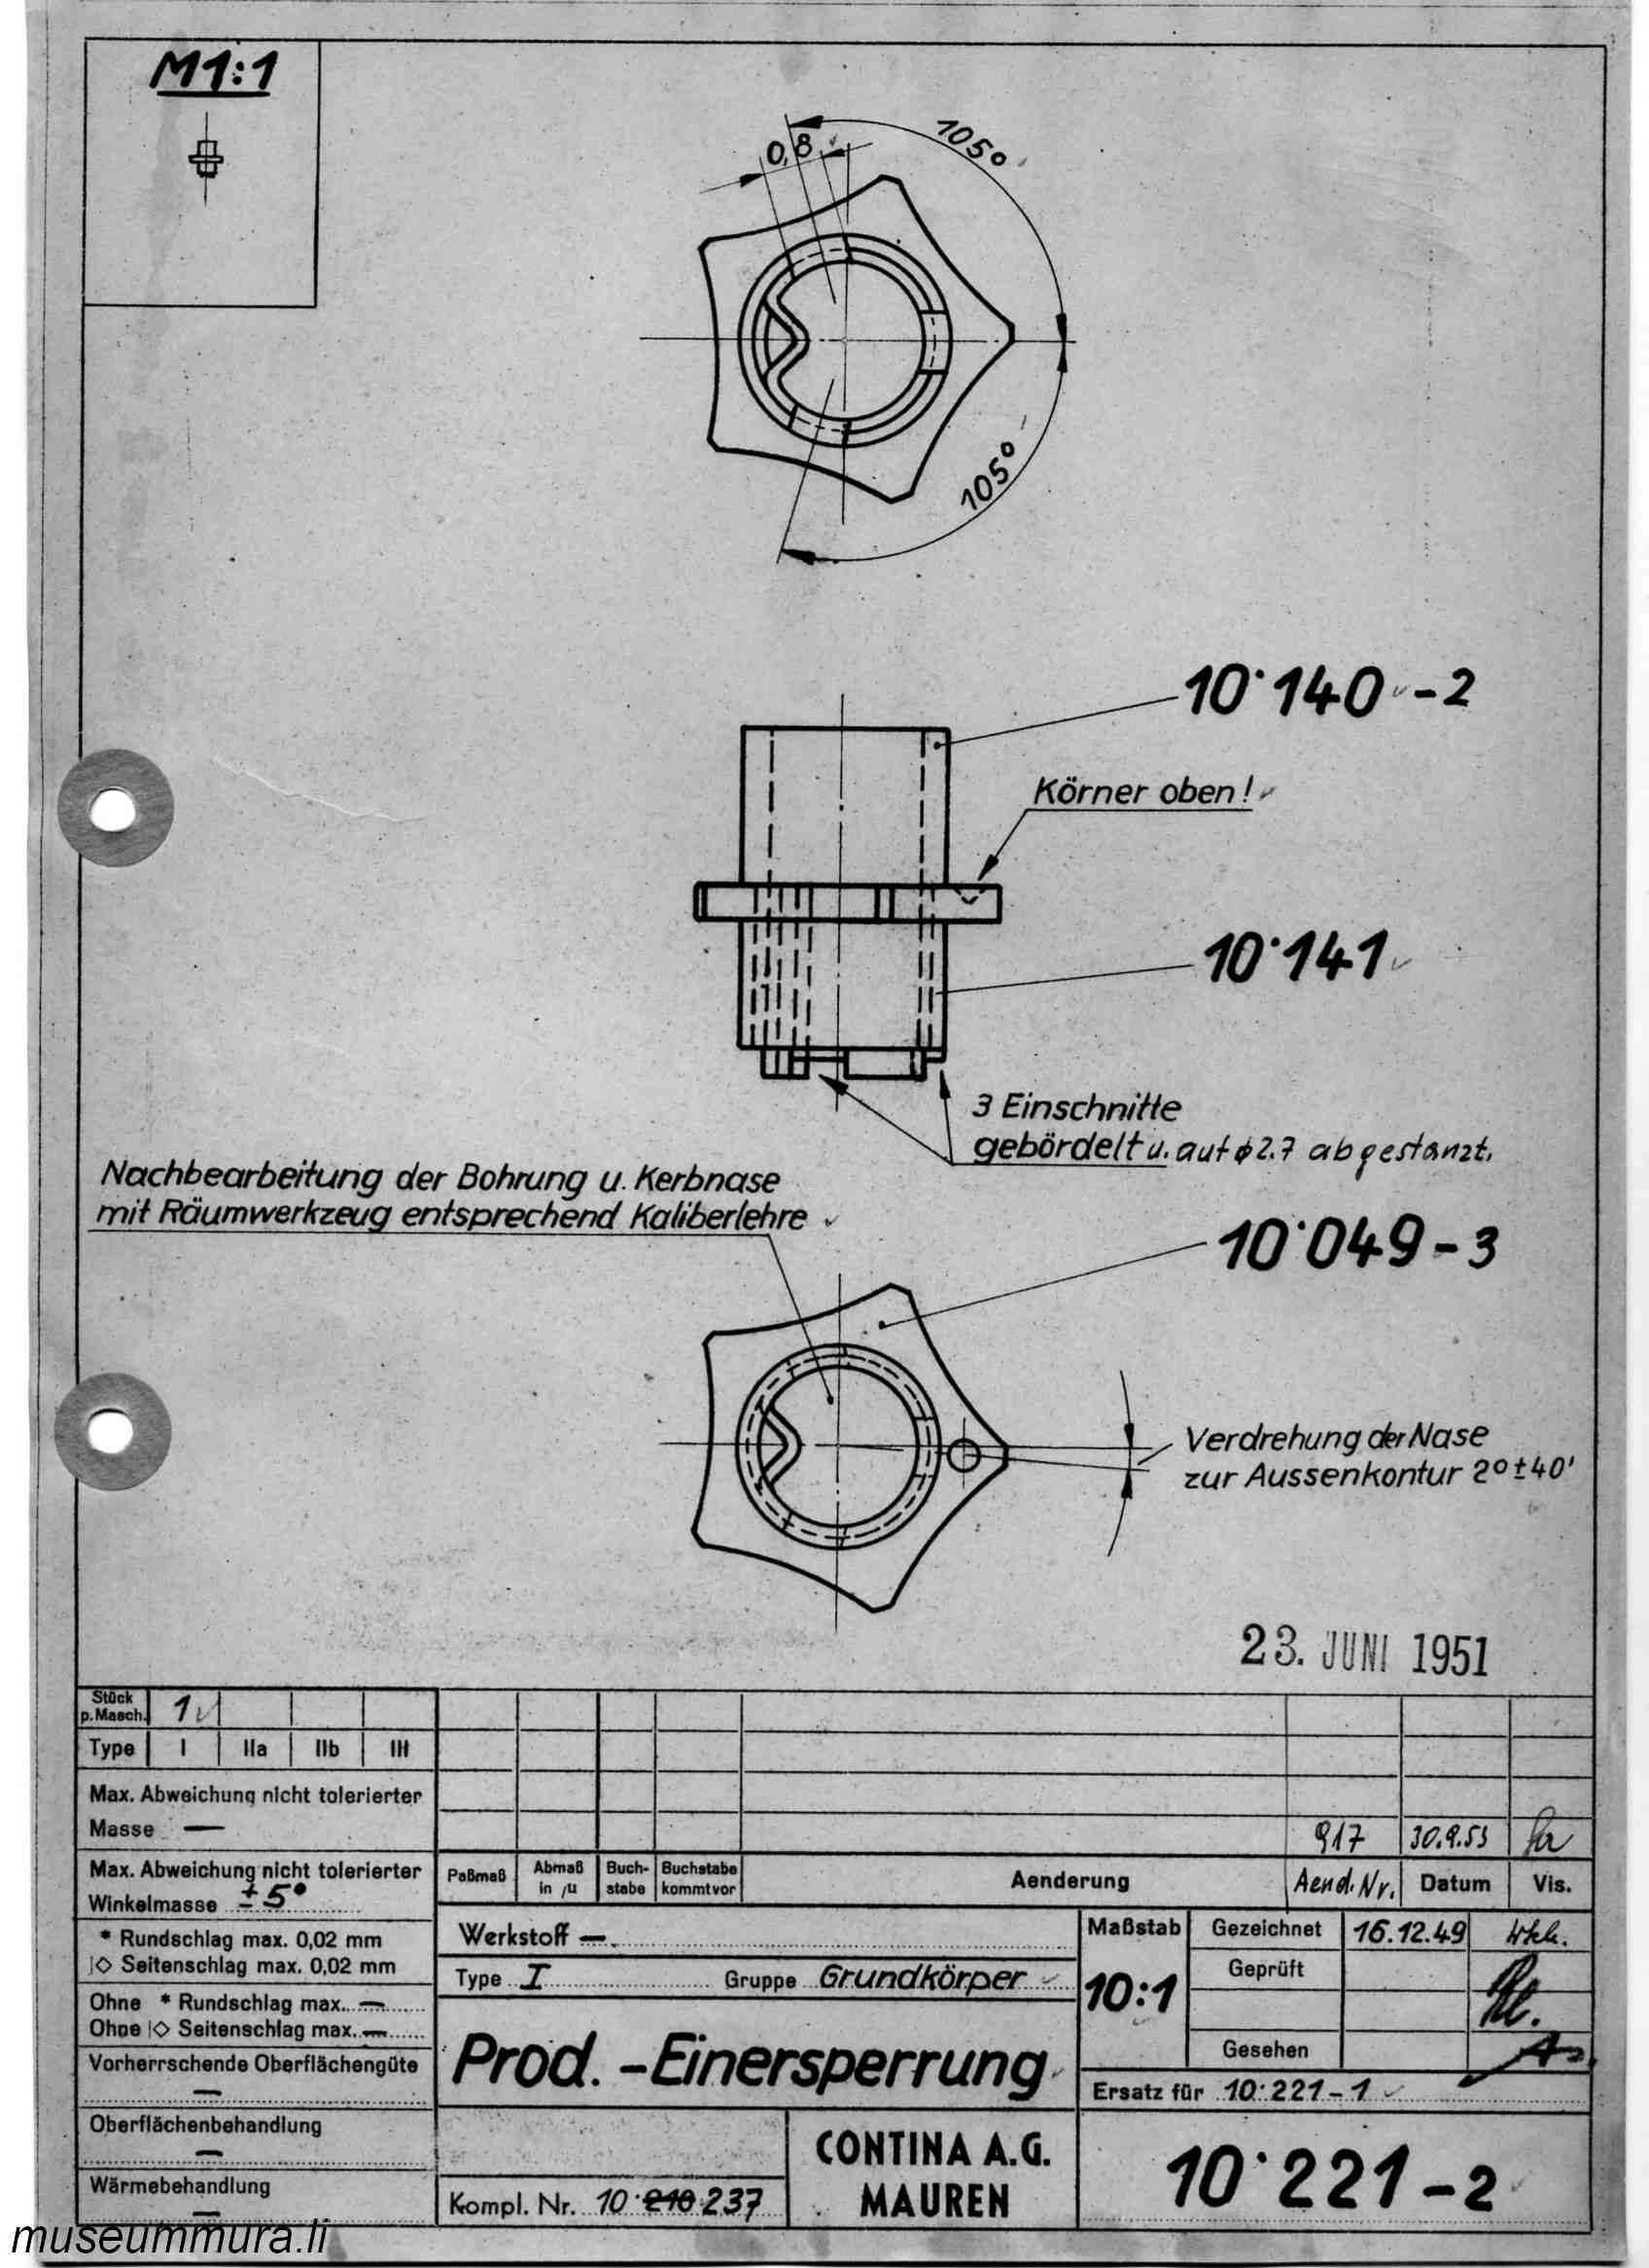 M1:1
0,8
105°
105°
10˙140 -2
Körner oben!
10˙141
3 Einschnitte
gebördelt u. auf ϕ2.7 abgestanzt.
Nachbearbeitung der Bohrung u. Kerbnase
mit Räumwerkzeug entsprechend Kaliberlehre
10˙049-3
Verdrehung der Nase
zur Aussenkontur 2°±40'
23. JUNI 1951
Stück
p. Masch. 1
Type I IIa IIb III
Max. Abweichung nicht tolerierter
Masse —
Max. Abweichung nicht tolerierter
Winkelmasse ±5°
* Rundschlag max. 0,02 mm
|◇ Seitenschlag max. 0,02 mm
Ohne * Rundschlag max. —
Ohne |◇ Seitenschlag max. —
Vorherrschende Oberflächengüte
—
Oberflächenbehandlung
—
Wärmebehandlung
—
917 30.9.53
Paßmaß Abmaß in μ Buch-stabe Buchstabe kommt vor Aenderung Aend. Nr. Datum Vis.
Werkstoff —
Type I Gruppe Grundkörper
Prod. -Einersperrung
Kompl. Nr. 10˙210 237
CONTINA A.G.
MAUREN
Maßstab
10:1
Gezeichnet 16.12.49
Geprüft
Gesehen
Ersatz für 10˙221-1
10˙221-2
museummura.li